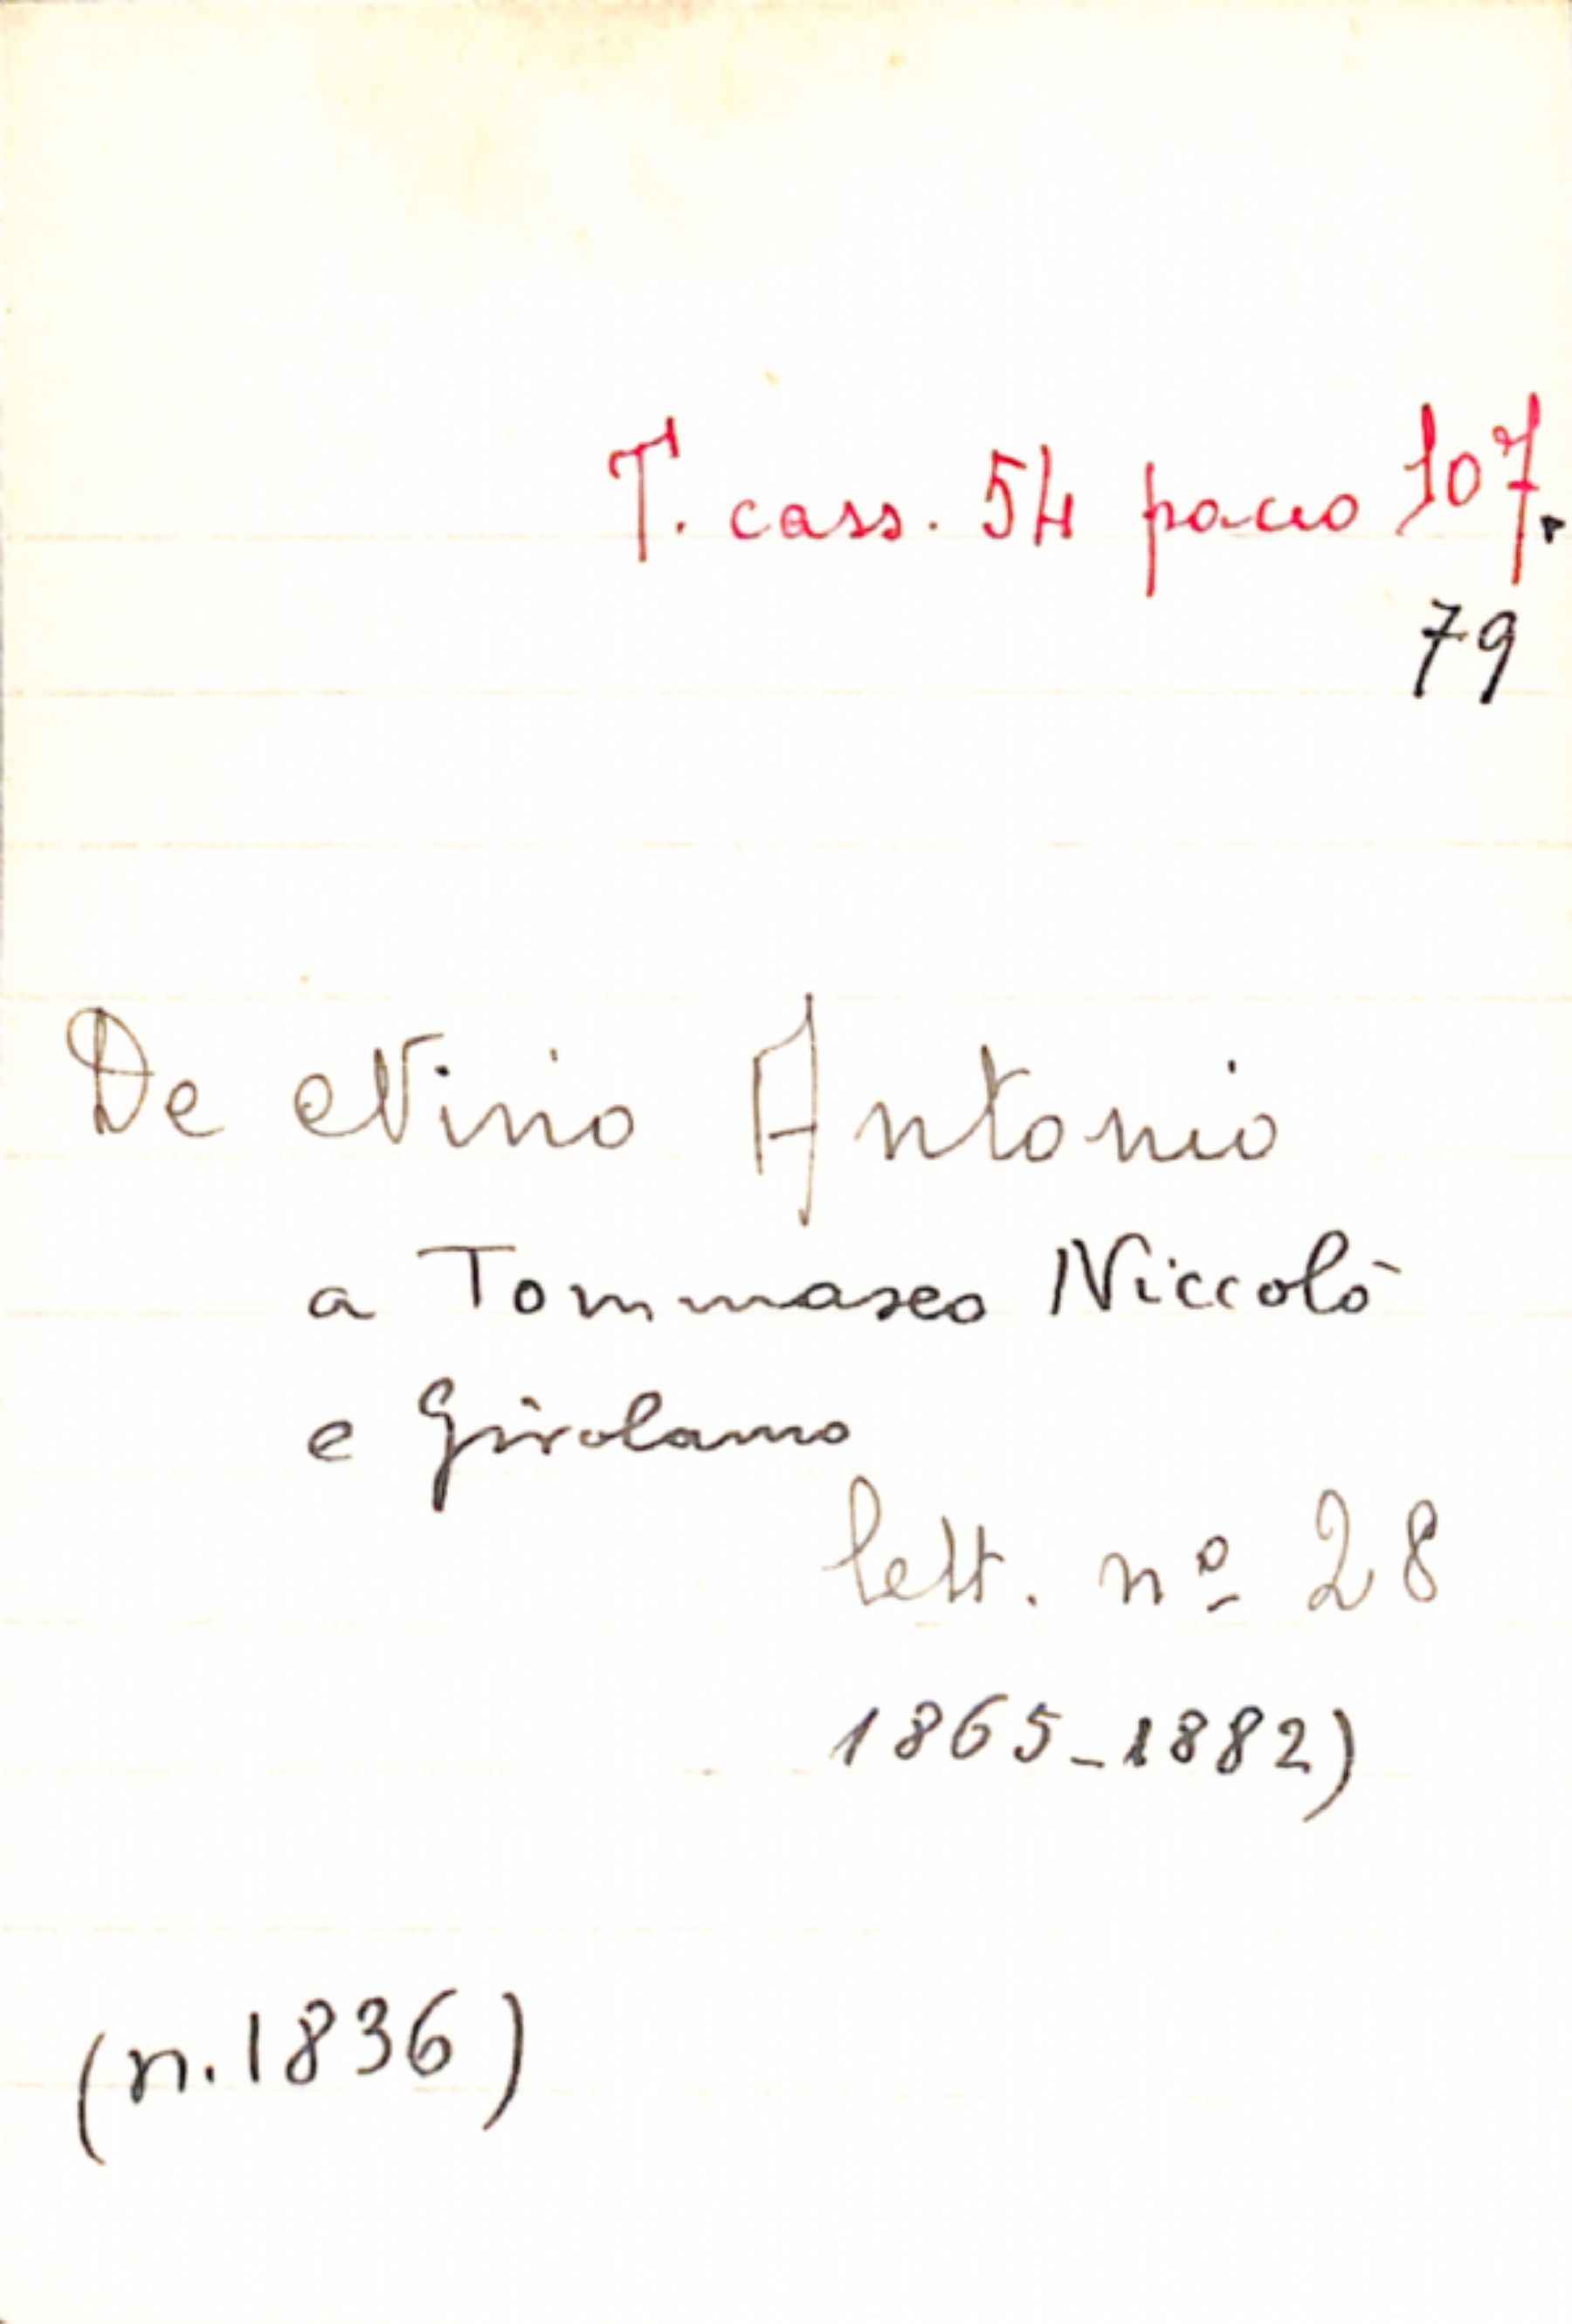 T. cass. 54 pacco 107.
79
De Nino Antonio
a Tommaseo Niccolò
e Girolamo
lett. nº 28
1865-1882)
(n. 1836)